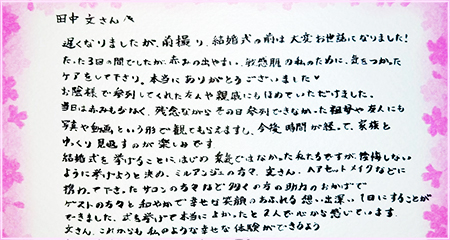 田中 文さんへ
遅くなりましたが、前撮り、結婚式の前は大変お世話になりました!
たった3回の間でしたが、赤みの出やすい、敏感肌の私のために、気をつかった
ケアをして下さり、本当にありがとうございました♥
お陰様で参列してくれた友人や親戚にもほめていただけました。
当日は赤みも少なく、残念ながらその日参列できなかった祖母や友人にも
写真や動画という形で観てもらえますし、今後時間が経って、家族と
ゆっくり見返すのが楽しみです
結婚式を挙げることに、はじめ乗気ではなかった私たちですが、後悔しない
ように挙げようと決め、ミルアンジェの方々、文さん、ヘアセットメイクなどに
携わって下さったサロンの方々など多くの方の助力のおかげで
ゲストの方々と和やかで幸せな笑顔のあふれる想い出深い1日にすることが
できました。式を挙げて本当によかったと2人で心から感じています。
文さん、これからも私のような幸せな体験ができるよう